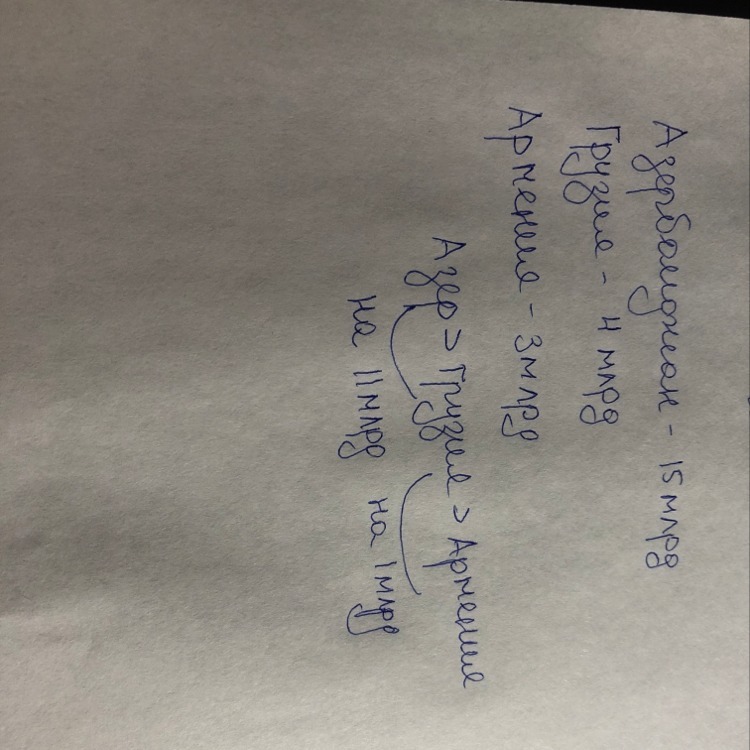 Азербайджан - 15 млрд
Грузия - 4 млрд
Армения - 3 млрд
Азер > Грузия > Армения
на 11 млрд на 1 млрд